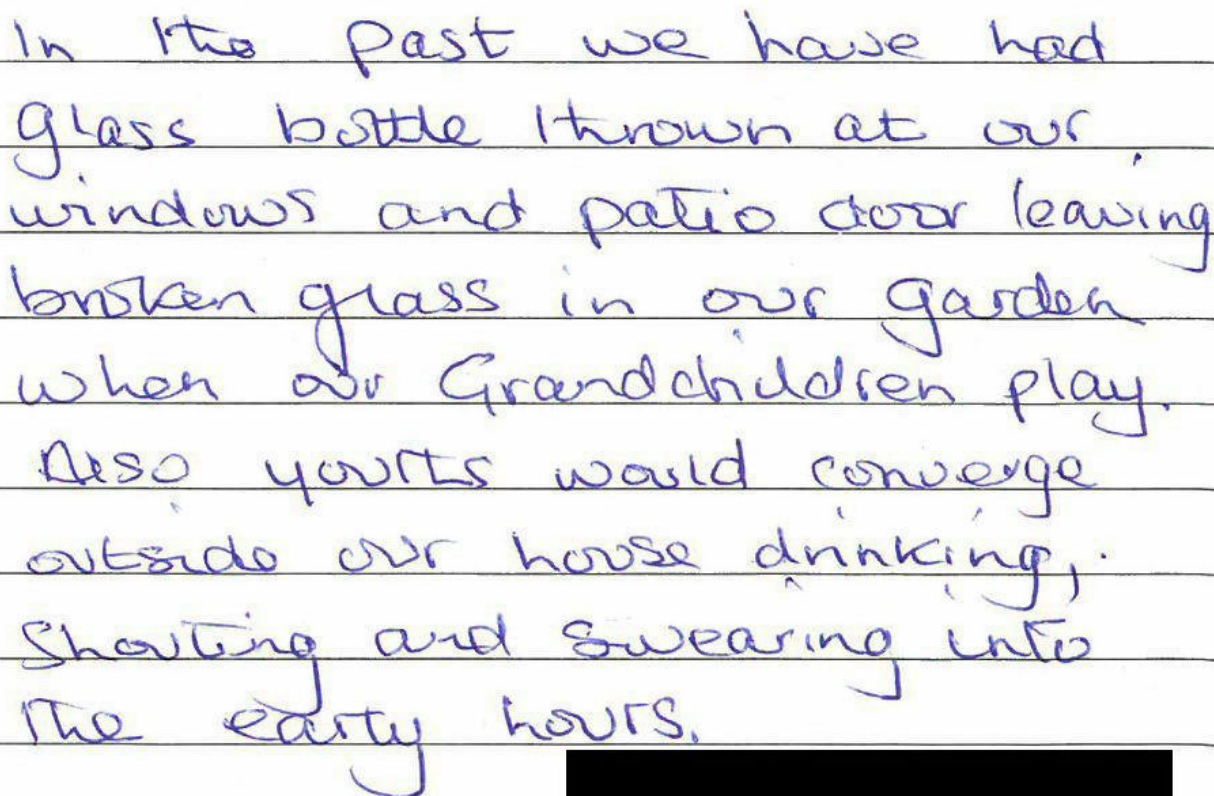 In the past we have had
glass bottle thrown at our
windows and patio door leaving
broken glass in our garden
when our Grandchildren play.
Also youths would converge
outside our house drinking,
Shouting and swearing into
the early hours.